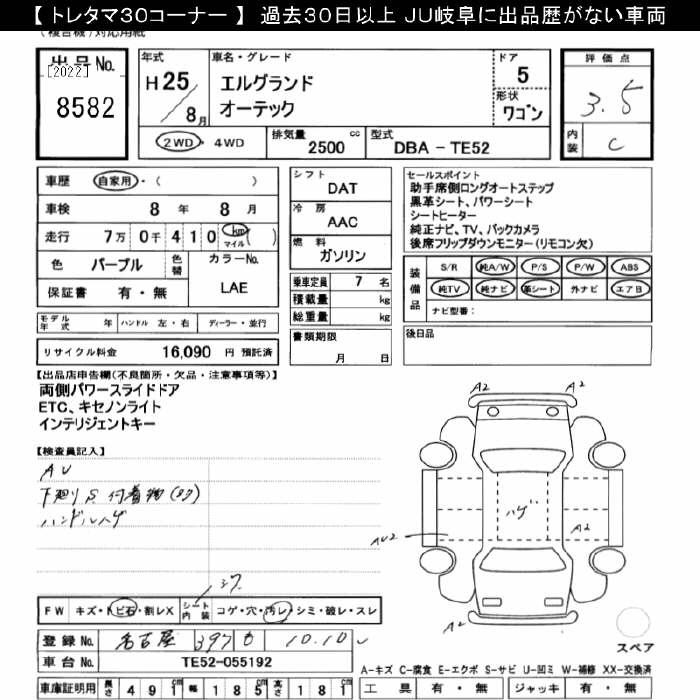 【 トレタマ30コーナー 】 過去30日以上 JU岐阜に出品歴がない車両
出品No.
[2022]
8582
年式
H 25 / 8 月
車名・グレード
エルグランド
オーテック
ドア
5
形状
ワゴン
2WD ・ 4WD
排気量
2500 cc
型式
DBA - TE52
評価点
3.5
内装
C
車歴 自家用・( )
車検 8 年 8 月
走行 7万 0千 4 1 0 km マイル ( )
色 パープル 色替 カラーNo.
LAE
保証書 有・無
シフト
DAT
冷房
AAC
燃料
ガソリン
乗車定員 7 名
積載量 kg
総重量 kg
書類期限
月 日
セールスポイント
助手席側ロングオートステップ
黒革シート、パワーシート
シートヒーター
純正ナビ、TV、バックカメラ
後席フリップダウンモニター(リモコン欠)
装備品
S/R 純A/W P/S P/W ABS
純TV 純ナビ 革シート 外ナビ エアB
ナビ型番:
モデル年式 年 ハンドル 左・右 ディーラー・並行
後日品
リサイクル料金 16,090 円 預託済
【出品店申告欄(不良箇所・欠品・注意事項等)】
両側パワースライドドア
ETC、キセノンライト
インテリジェントキー
【検査員記入】
AU
下廻りS 付着物(タワ)
ハンドルハゲ
A2 A2
ハゲ
A2
AU2
A2
スペア
FW キズ・トビ石・割レX シート内装 コゲ・穴・汚レ・シミ・破レ・スレ
登録No. 名古屋 397 10.10
車台No. TE52-055192
車庫証明用 長さ 491 cm 幅 185 cm 高さ 181 cm
A-キズ C-腐食 E-エクボ S-サビ U-凹ミ W-補修 XX-交換済
工具 有・無 ジャッキ 有・無